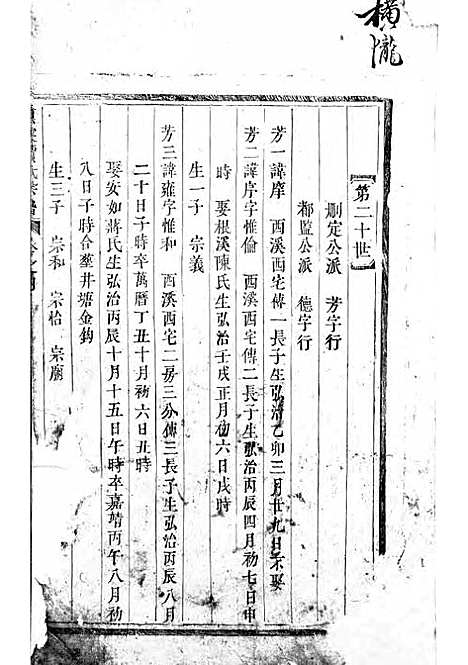 橫隴
【第二十世】
刪定公派 芳字行
都監公派 德字行
芳一諱庠 西溪西宅傳一長子生弘治乙卯三月廿九日未娶
芳二諱序字惟倫 西溪西宅傳二長子生弘治丙辰四月初七日申
時 娶根溪陳氏生弘治壬戌正月初六日戌時
生一子 宗義
芳三諱雍字惟和 西溪西宅二房三分傳三長子生弘治丙辰八月
二十日子時卒萬曆丁丑十月初六日丑時
娶安如蔣氏生弘治丙辰十月十五日午時卒嘉靖丙午八月初
八日子時合塟井塘金鈎
生三子 宗和 宗恰 宗廟
氏宗譜